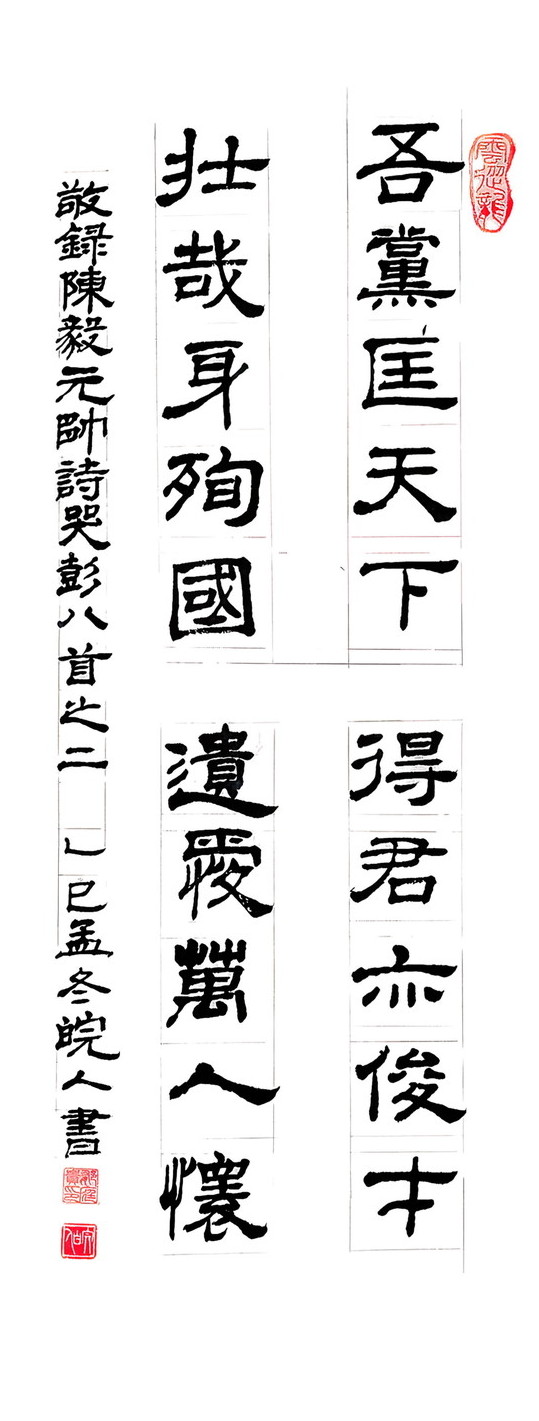 吾黨匡天下 得君亦俊才
壯哉身殉國 遺愛萬人懷
敬録陳毅元帥詩哭彭八首之二 乙巳孟冬皖人書